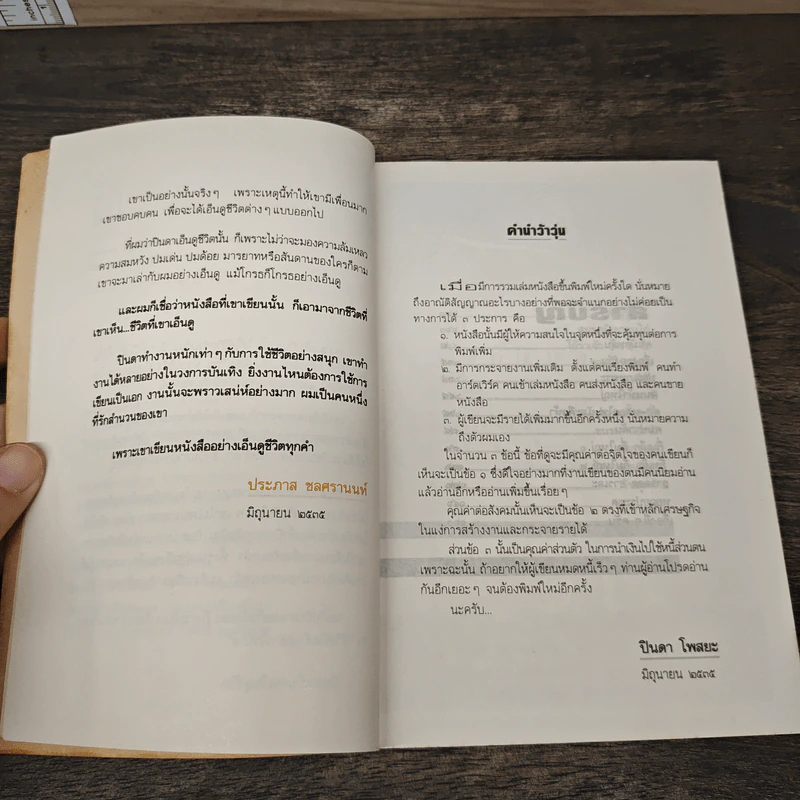 inches
1
เขาเป็นอย่างนั้นจริงๆ เพราะเหตุนี้ทำให้เขามีเพื่อนมาก
เขาชอบคบคน เพื่อจะได้เอ็นดูชีวิตต่างๆ แบบออกไป
ที่ผมว่าปินดาเอ็นดูชีวิตนั้น ก็เพราะไม่ว่าจะมองความล้มเหลว
ความสมหวัง ปมเด่น ปมด้อย มารยาทหรือสันดานของใครก็ตาม
เขาจะมาเล่ากับผมอย่างเอ็นดู แม้โกรธก็โกรธอย่างเอ็นดู
และผมก็เชื่อว่าหนังสือที่เขาเขียนนั้น ก็เอามาจากชีวิตที่
เขาเห็น...ชีวิตที่เขาเอ็นดู
ปินดาทำงานหนักเท่าๆ กับการใช้ชีวิตอย่างสนุก เขาทำ
งานได้หลายอย่างในวงการบันเทิง ยิ่งงานไหนต้องการใช้การ
เขียนเป็นเอก งานนั้นจะพราวเสน่ห์อย่างมาก ผมเป็นคนหนึ่ง
ที่รักสำนวนของเขา
เพราะเขาเขียนหนังสืออย่างเอ็นดูชีวิตทุกคำ
ประภาส ชลศรานนท์
มิถุนายน ๒๕๓๕
คำนำว้าวุ่น
เมื่อมีการรวมเล่มหนังสือขึ้นพิมพ์ใหม่ครั้งใด นั่นหมาย
ถึงอาณัติสัญญาณอะไรบางอย่างที่พอจะจำแนกอย่างไม่ค่อยเป็น
ทางการได้ ๓ ประการ คือ
๑. หนังสือนั้นมีผู้ให้ความสนใจในจุดหนึ่งที่จะคุ้มทุนต่อการ
พิมพ์เพิ่ม
๒. มีการกระจายงานเพิ่มเติม ตั้งแต่คนเรียงพิมพ์ คนทำ
อาร์ตเวิร์ค คนเข้าเล่มหนังสือ คนส่งหนังสือ และคนขาย
หนังสือ
๓. ผู้เขียนจะมีรายได้เพิ่มมากขึ้นอีกครั้งหนึ่ง นั่นหมายความ
ถึงตัวผมเอง
ในจำนวน ๓ ข้อนี้ ข้อที่ดูจะมีคุณค่าต่อจิตใจของคนเขียนก็
เห็นจะเป็นข้อ ๑ ซึ่งดีใจอย่างมากที่งานเขียนของตนมีคนนิยมอ่าน
แล้วอ่านอีกหรืออ่านเพิ่มขึ้นเรื่อยๆ
คุณค่าต่อสังคมนั้นเห็นจะเป็นข้อ ๒ ตรงที่เข้าหลักเศรษฐกิจ
ในแง่การสร้างงานและกระจายรายได้
ส่วนข้อ ๓ นั้นเป็นคุณค่าส่วนตัว ในการนำเงินไปใช้หนี้ส่วนตน
เพราะฉะนั้น ถ้าอยากให้ผู้เขียนหมดหนี้เร็วๆ ท่านผู้อ่านโปรดอ่าน
กันอีกเยอะๆ จนต้องพิมพ์ใหม่อีกครั้ง
นะครับ...
ปินดา โพสยะ
มิถุนายน ๒๕๓๕